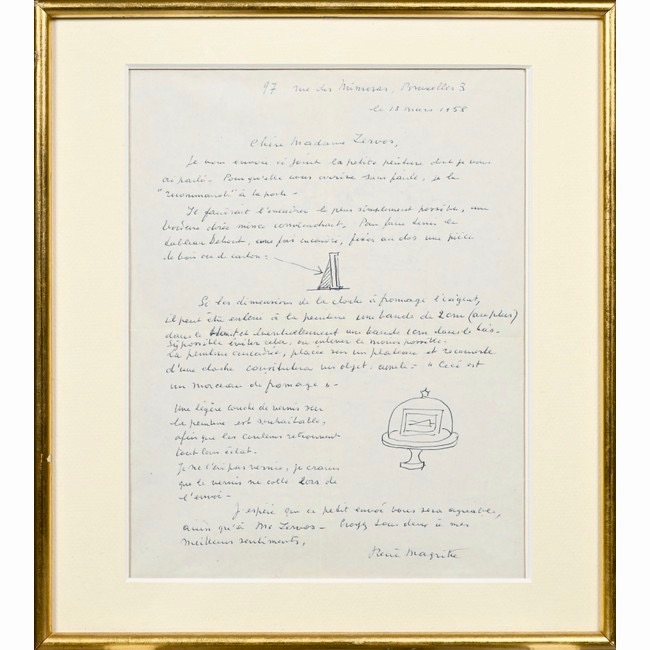 97 rue des Mimosas, Bruxelles 3
le 13 mars 1958
Chère Madame Zervos,
Je vous envoie ci joint la petite peinture dont je vous
ai parlé. Pour qu'elle vous arrive sans faute, je la
"recommande" à la poste.
Il faudrait l'encadrer le plus simplement possible, une
bordure dorée mince conviendrait. Pour faire tenir le
tableau debout, une fois encadré, fixer au dos une pièce
de bois ou de carton :
Si les dimensions de la cloche à fromage l'exigent,
il peut être enlevé à la peinture une bande de 2 cm (au plus)
dans le haut et éventuellement une bande 1 cm dans le bas.
Si possible éviter cela, ou enlever le moins possible.
La peinture encadrée, placée sur un plateau et recouverte
d'une cloche constituera un objet intitulé : « Ceci est
un morceau de fromage ».
Une légère couche de vernis sur
la peinture est souhaitable,
afin que les couleurs retrouvent
tout leur éclat.
Je ne l'ai pas vernie, je crains
que le vernis ne colle lors de
l'envoi –
J'espère que ce petit envoi vous sera agréable,
ainsi qu'à Mr Zervos – Croyez tous deux à mes
meilleurs sentiments,
René Magritte